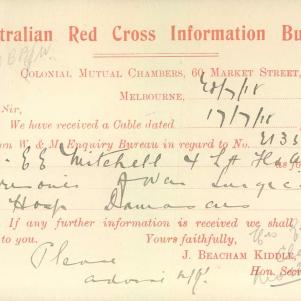 tralian Red Cross Information Bu
Colonial Mutual Chambers, 60 Market Street,
Melbourne, 20/7/18
Sir,
We have received a Cable dated 17/7/18
om W. & M. Enquiry Bureau in regard to No. 2133
E E Mitchell 4 L H as fo
Prisoner of War Surgic
Hosp Damascus
If any further information is received we shall
to you. Yours faithfully,
J. Beacham Kiddle,
Hon. Secr
Please
advise